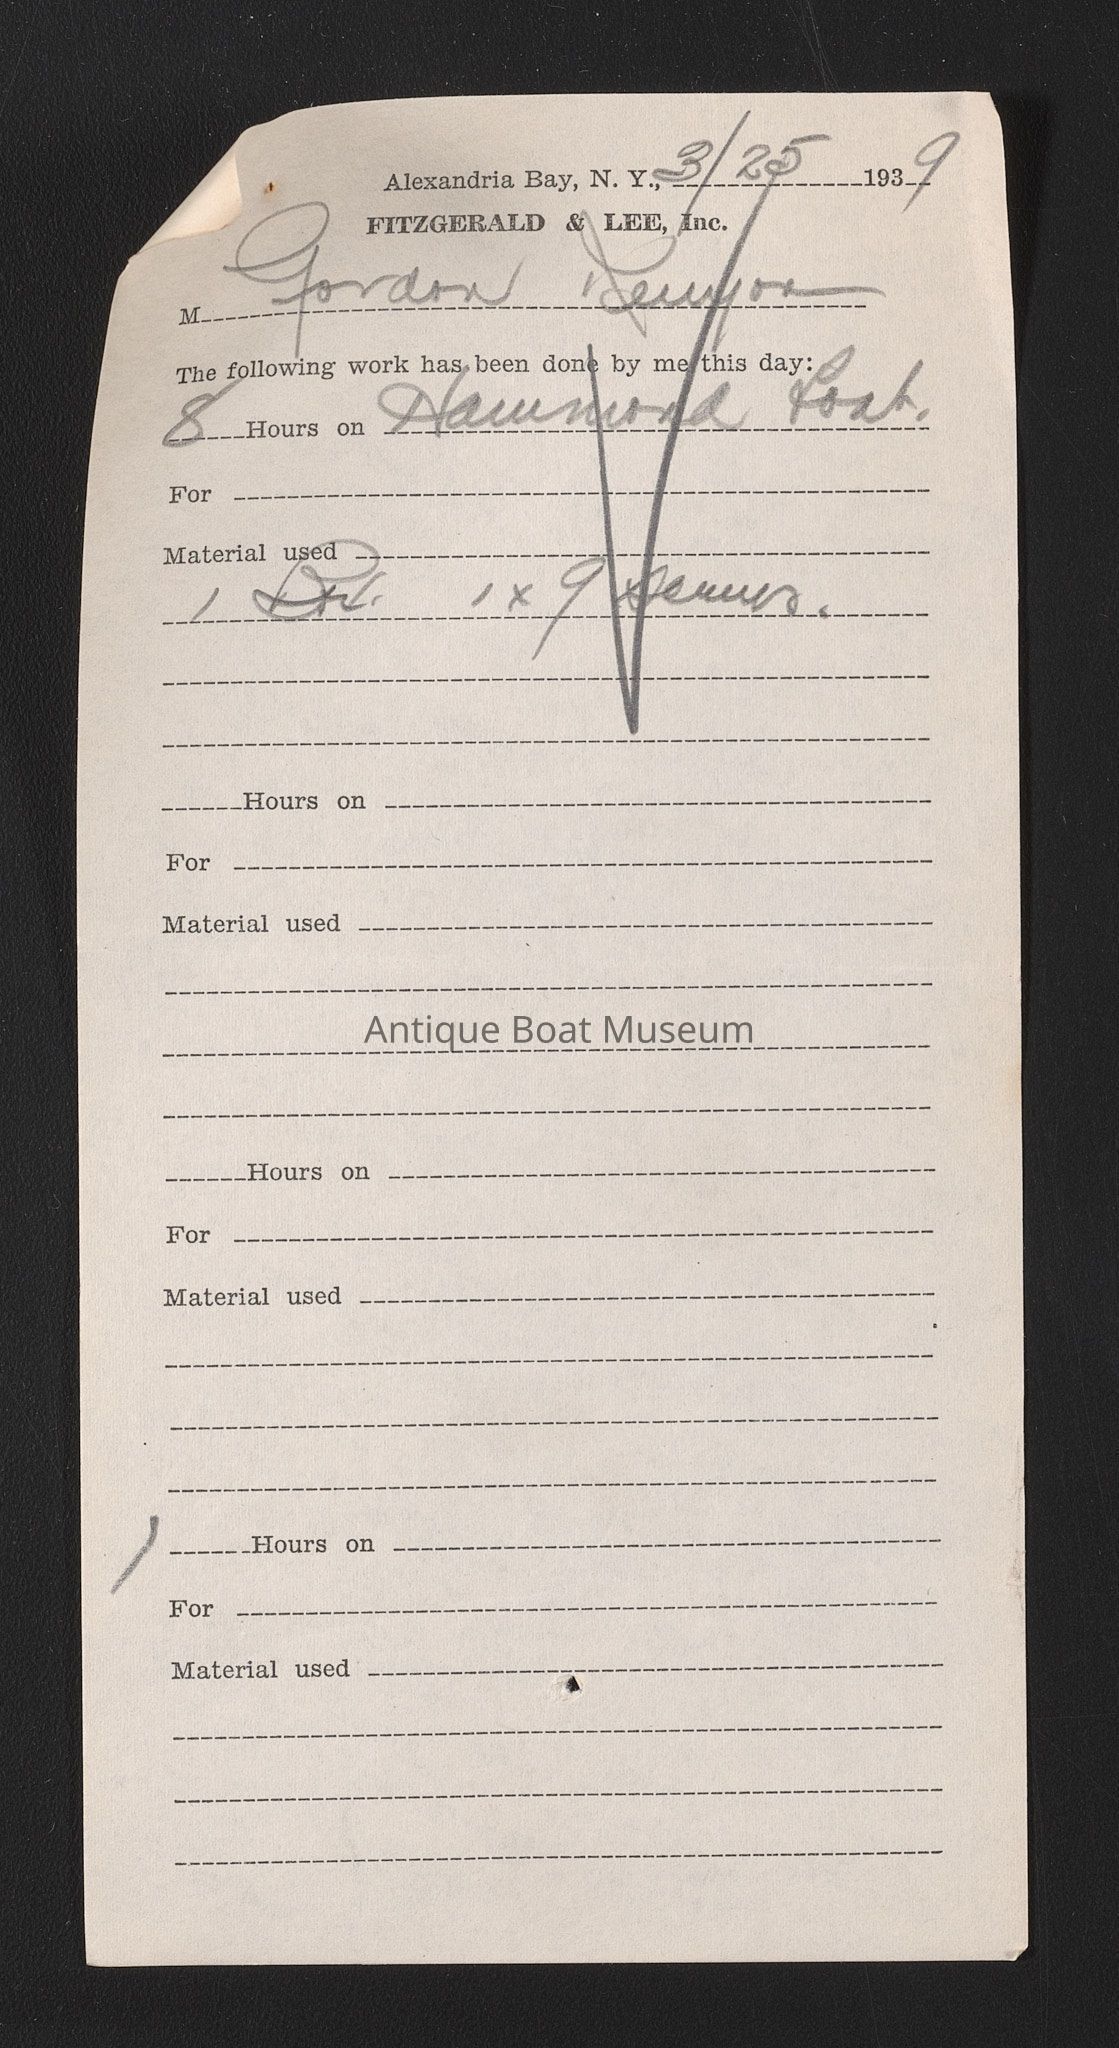 Alexandria Bay, N. Y., 3/25 1939
FITZGERALD & LEE, Inc.
M Gordon Kenyon
The following work has been done by me this day:
8 Hours on Hammond boat.
For
Material used
1 1 x 9 screws.
Hours on
For
Material used
Antique Boat Museum
Hours on
For
Material used
Hours on
For
Material used